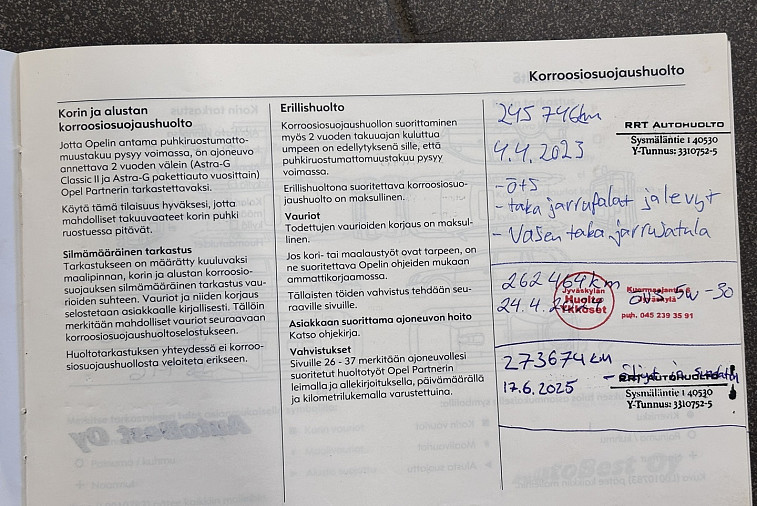 Korroosiosuojaushuolto
Korin ja alustan
korroosiosuojaushuolto
Jotta Opelin antama puhkiruostumatto-
muustakuu pysyy voimassa, on ajoneuvo
annettava 2 vuoden välein (Astra-G
Classic II ja Astra-G pakettiauto vuosittain)
Opel Partnerin tarkastettavaksi.
Käytä tämä tilaisuus hyväksesi, jotta
mahdolliset takuuvaateet korin puhki
ruostuessa pitävät.
Silmämääräinen tarkastus
Tarkastukseen on määrätty kuuluvaksi
maalipinnan, korin ja alustan korroosio-
suojauksen silmämääräinen tarkastus vau-
rioiden suhteen. Vauriot ja niiden korjaus
selostetaan asiakkaalle kirjallisesti. Tällöin
merkitään mahdolliset vauriot seuraavaan
korroosiosuojaushuoltoselostukseen.
Huoltotarkastuksen yhteydessä ei korroo-
siosuojaushuollosta veloiteta erikseen.
Erillishuolto
Korroosiosuojaushuollon suorittaminen
myös 2 vuoden takuuajan kuluttua
umpeen on edellytyksenä sille, että
puhkiruostumattomuustakuu pysyy
voimassa.
Erillishuoltona suoritettava korroosiosuo-
jaushuolto on maksullinen.
Vauriot
Todettujen vaurioiden korjaus on maksul-
linen.
Jos kori- tai maalaustyöt ovat tarpeen, on
ne suoritettava Opelin ohjeiden mukaan
ammattikorjaamossa.
Tällaisten töiden vahvistus tehdään seu-
raaville sivuille.
Asiakkaan suorittama ajoneuvon hoito
Katso ohjekirja.
Vahvistukset
Sivuille 26 - 37 merkitään ajoneuvollesi
suoritetut huoltotyöt Opel Partnerin
leimalla ja allekirjoituksella, päivämäärällä
ja kilometrilukemalla varustettuina.
245 746km
RRT AUTOHUOLTO
Sysmäläntie 1 40530
Y-Tunnus: 3310752-5
4.4.2023
- ö+s
- taka jarrupalat ja levyt
- Vasen taka jarrusatula
262 464 km
24.4.
Jyväskylän
Huolto
Ykköset
Jyväskylä
puh. 045 239 35 91
5w-30
273674 km
17.6.2025
RRT AUTOHUOLTO
Sysmäläntie 1 40530
Y-Tunnus: 3310752-5
AutoBest Oy